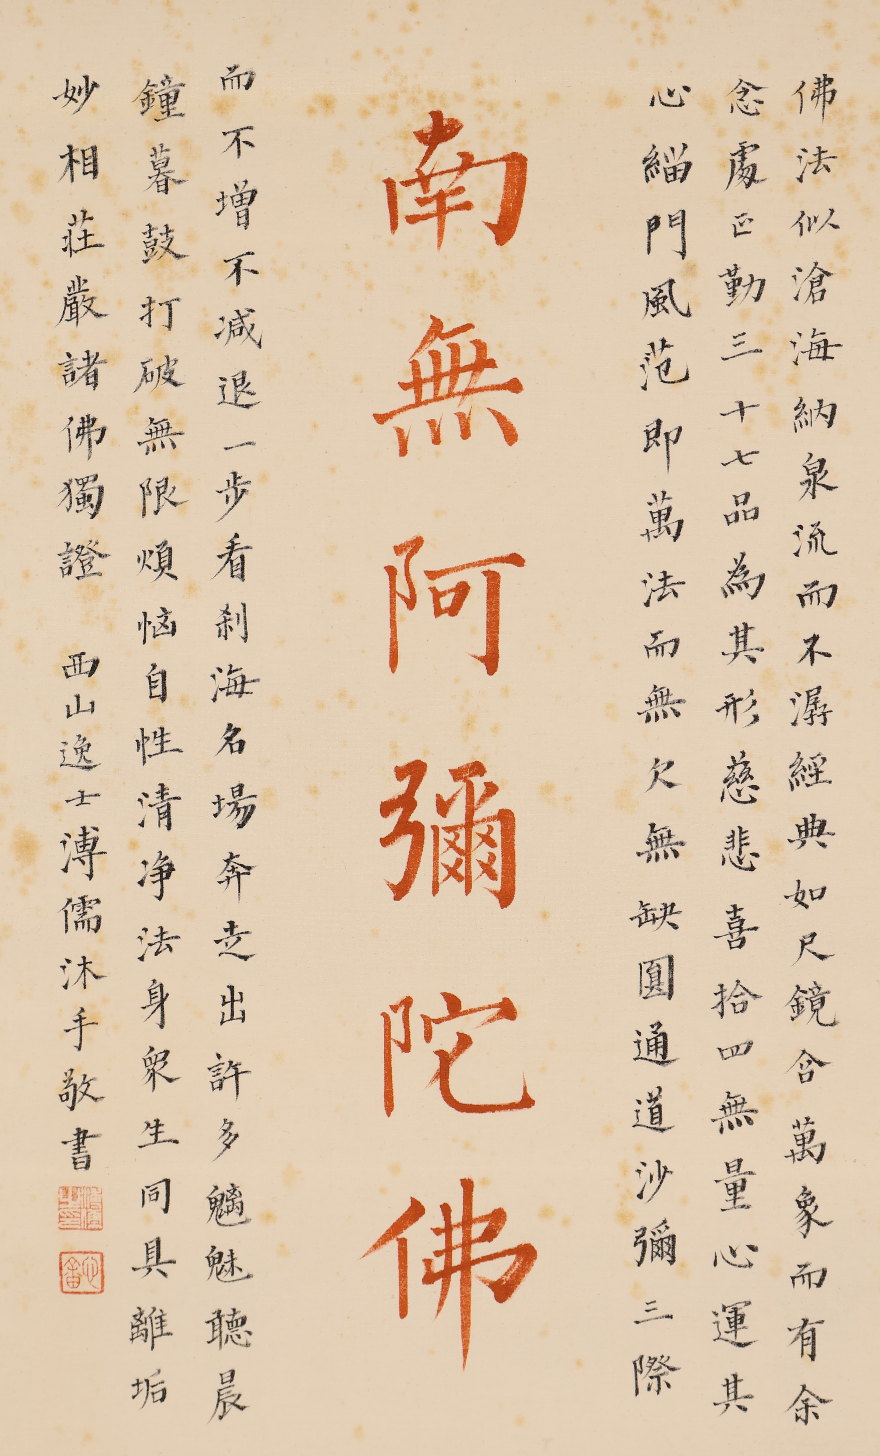 佛法似滄海納泉流而不潺經典如尺鏡含萬象而有余
念處正勤三十七品為其形慈悲喜拾四無量心運其
心緇門風范即萬法而無欠無缺圓通道沙彌三際
南無阿彌陀佛
而不增不減退一步看刹海名場奔走出許多魑魅聽晨
鐘暮鼓打破無限煩惱自性清净法身眾生同具離垢
妙相莊嚴諸佛獨證 西山逸士溥儒沐手敬書
溥儒
心畬